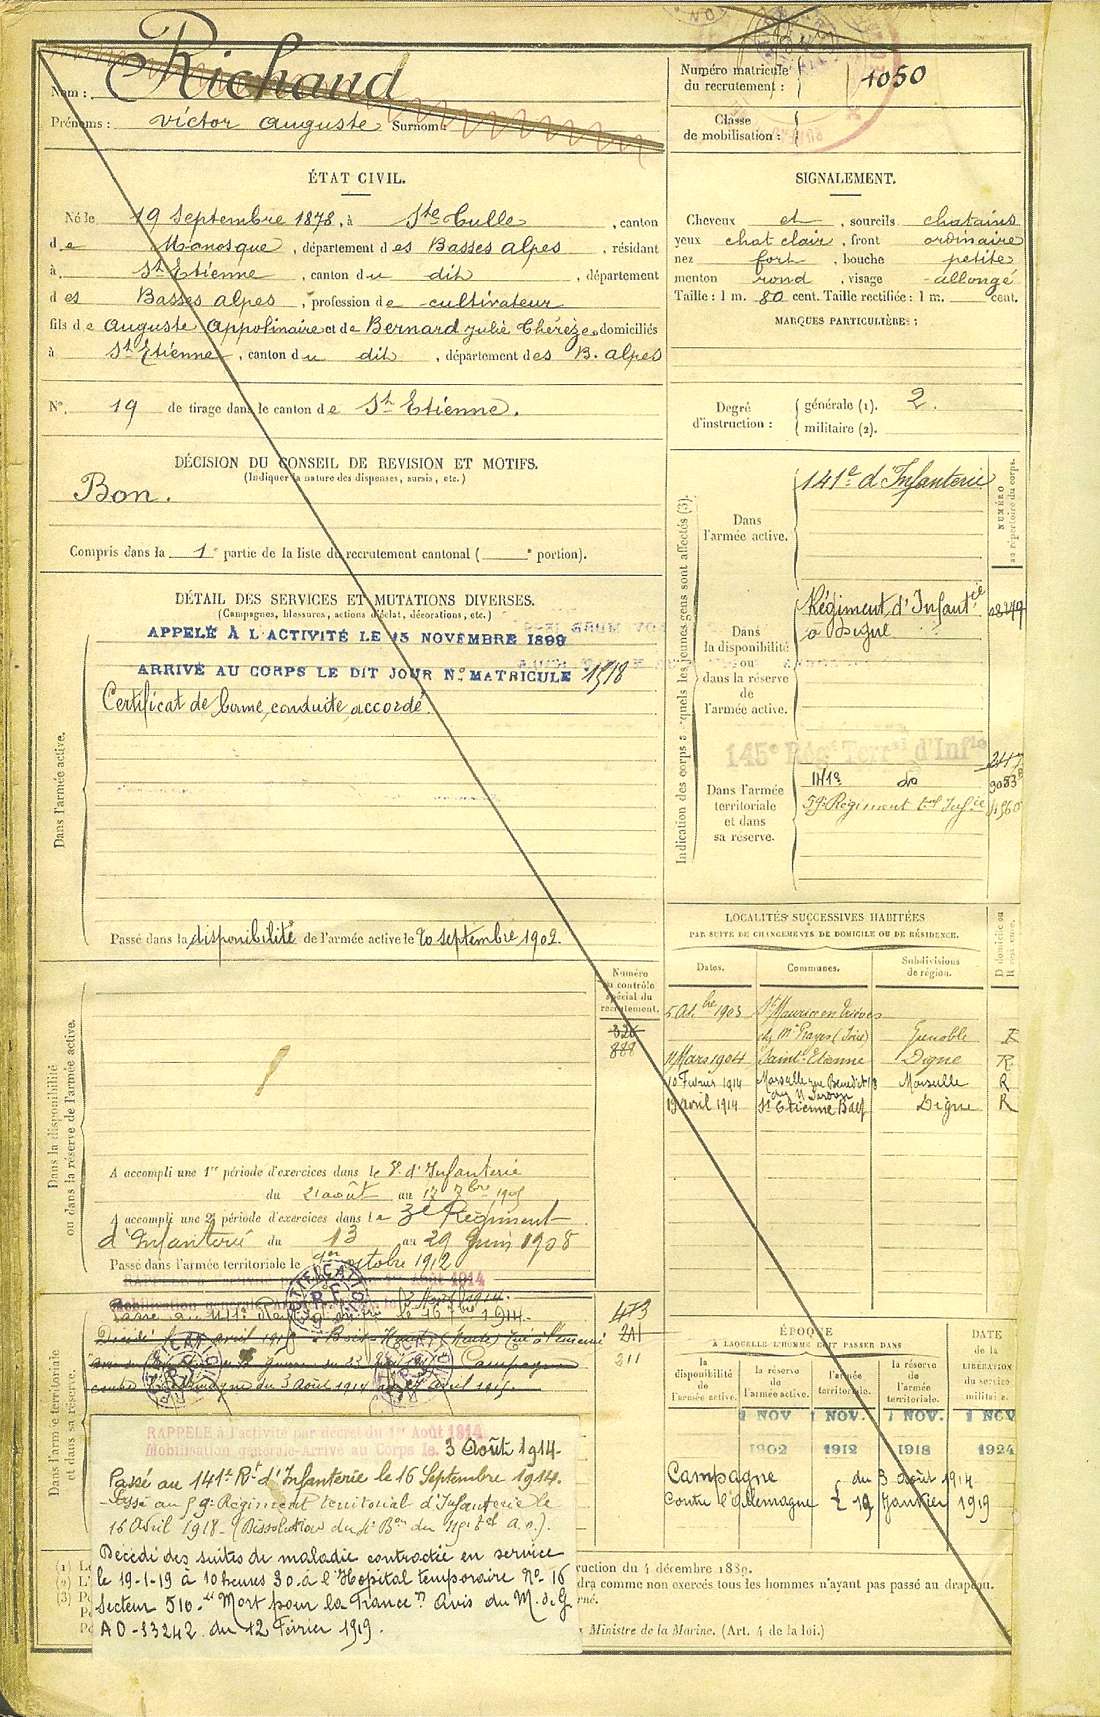 Nom : Richaud
Prénoms : Victor Auguste Surnom :
Numéro matricule du recrutement : 1050
Classe de mobilisation :
ÉTAT CIVIL.
Né le 19 Septembre 1878, à Ste Tulle, canton
de Manosque, département des Basses Alpes, résidant
à St Etienne, canton du dit, département
des Basses Alpes, profession de cultivateur
fils de Auguste Appolinaire et de Bernard Julie Thérèze, domiciliés
à St Etienne, canton du dit, département des B. Alpes
N° 19 de tirage dans le canton de St Etienne.
SIGNALEMENT.
Cheveux et, sourcils chatains
yeux chat clair, front ordinaire
nez fort, bouche petite
menton rond, visage allongé
Taille : 1 m. 80 cent. Taille rectifiée : 1 m. cent.
MARQUES PARTICULIÈRES :
Degré d'instruction : générale (1). 2.
militaire (2).
DÉCISION DU CONSEIL DE REVISION ET MOTIFS.
(Indiquer la nature des dispenses, sursis, etc.)
Bon.
Compris dans la 1e partie de la liste du recrutement cantonal ( e portion).
DÉTAIL DES SERVICES ET MUTATIONS DIVERSES.
(Campagnes, blessures, actions d'éclat, décorations, etc.)
Dans l'armée active.
APPELÉ À L'ACTIVITÉ LE 15 NOVEMBRE 1899
ARRIVÉ AU CORPS LE DIT JOUR N° MATRICULE 1518
Certificat de bonne conduite accordé.
Passé dans la disponibilité de l'armée active le 20 septembre 1902.
Indication des corps auxquels les jeunes gens sont affectés (3).
NUMÉRO au répertoire du corps.
Dans l'armée active.
141e d'Infanterie
Dans la disponibilité ou dans la réserve de l'armée active.
Régiment d'Infantie
à Digne
Dans l'armée territoriale et dans sa réserve.
145e Régt Terral d'Infie
do
59e Régiment tal Infie
LOCALITÉS SUCCESSIVES HABITÉES
PAR SUITE DE CHANGEMENTS DE DOMICILE OU DE RÉSIDENCE.
Dates. Communes. Subdivisions de région. D domicile ou R résidence.
1903 St Maurice en Trièves
(Isère) Grenoble R
11 Mars 1904 Saint Etienne Digne R
10 Février 1914 Marseille Marseille R
19 avril 1914 St Etienne Digne R
Numéro au contrôle spécial du recrutement.
326
888
Dans la disponibilité ou dans la réserve de l'armée active.
A accompli une 1re période d'exercices dans le 3e d'Infanterie
du 21 août au 17 7bre 1905
A accompli une 2e période d'exercices dans le 3e Régiment
d'Infanterie du 13 au 29 Juin 1908
Passé dans l'armée territoriale le 1er octobre 1912
Dans l'armée territoriale et dans sa réserve.
473
211
211
RAPPELÉ à l'activité par décret du 1er Août 1914.
Mobilisation générale-Arrivé au Corps le 3 Août 1914.
Passé au 141e Rt d'Infanterie le 16 Septembre 1914.
Passé au 59e Régiment territorial d'Infanterie le
16 Avril 1918 - (Dissolution du
Décédé des suites de maladie contractée en service
le 19-1-19 à 10 heures 30 à l'Hopital temporaire N° 16
Secteur 510. "Mort pour la France" Avis du M. de G.
AD-33242 du 12 Février 1919.
ÉPOQUE
À LAQUELLE L'HOMME DOIT PASSER DANS
DATE de la LIBÉRATION du service militaire.
la disponibilité de l'armée active. la réserve de l'armée active. l'armée territoriale. la réserve de l'armée territoriale.
1 NOV 1 NOV. 1 NOV. 1 NOV
1902 1912 1918 1924
Campagne du 3 août 1914
Contre l'Allemagne 19 Janvier 1919
ruction du 4 décembre 1889.
dra comme non exercés tous les hommes n'ayant pas passé au drapeau.
Ministre de la Marine. (Art. 4 de la loi.)